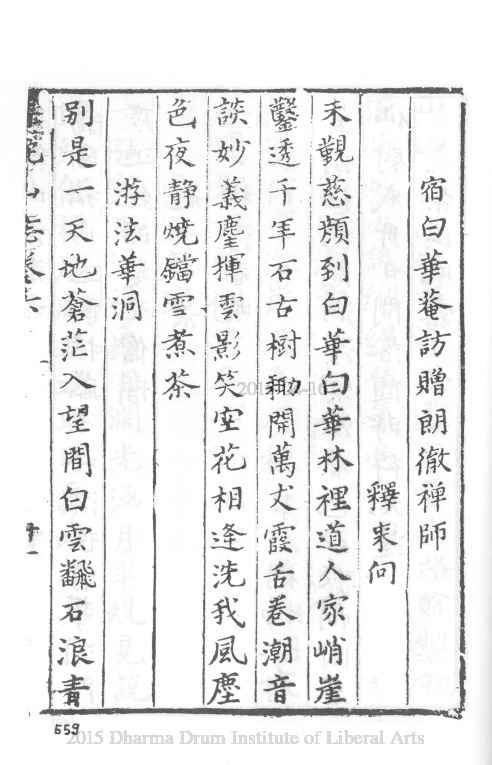 宿白華菴訪贈朗徹禪師
釋來向
未觀慈顏到白華白華林裡道人家峭崖
鑿透千年石古樹鋤開萬丈霞舌卷潮音
談妙義塵揮雲影笑空花相逢洗我風塵
色夜靜燒鐺雪煮茶
游法華洞
別是一天地蒼茫入望間白雲飜石浪青
559
2015 Dharma Drum Institute of Liberal Arts